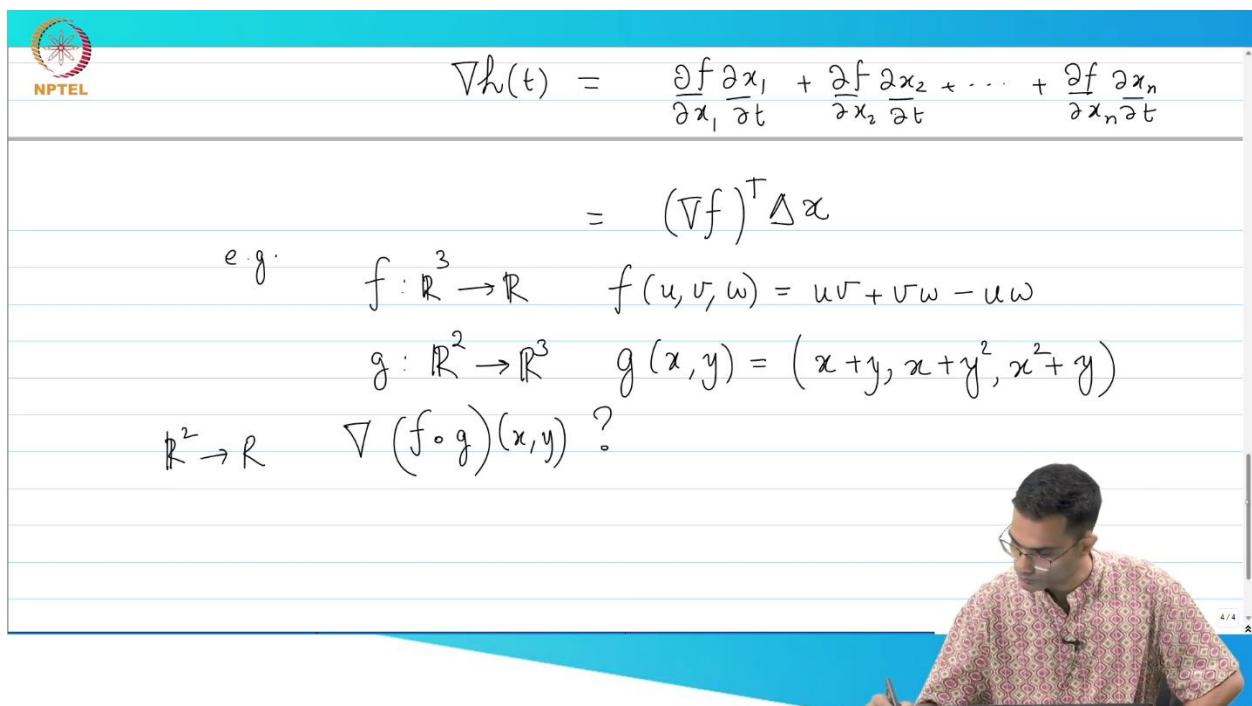 ∇h(t) = ∂f/∂x₁ ∂x₁/∂t + ∂f/∂x₂ ∂x₂/∂t + ···· + ∂f/∂xₙ ∂xₙ/∂t
NPTEL
= (∇f)ᵀ Δx
e.g. f : ℝ³ → ℝ f(u, v, w) = uv + vw - uw
g : ℝ² → ℝ³ g(x, y) = (x + y, x + y², x² + y)
ℝ² → R ∇(f∘g)(x, y) ?
4 / 4